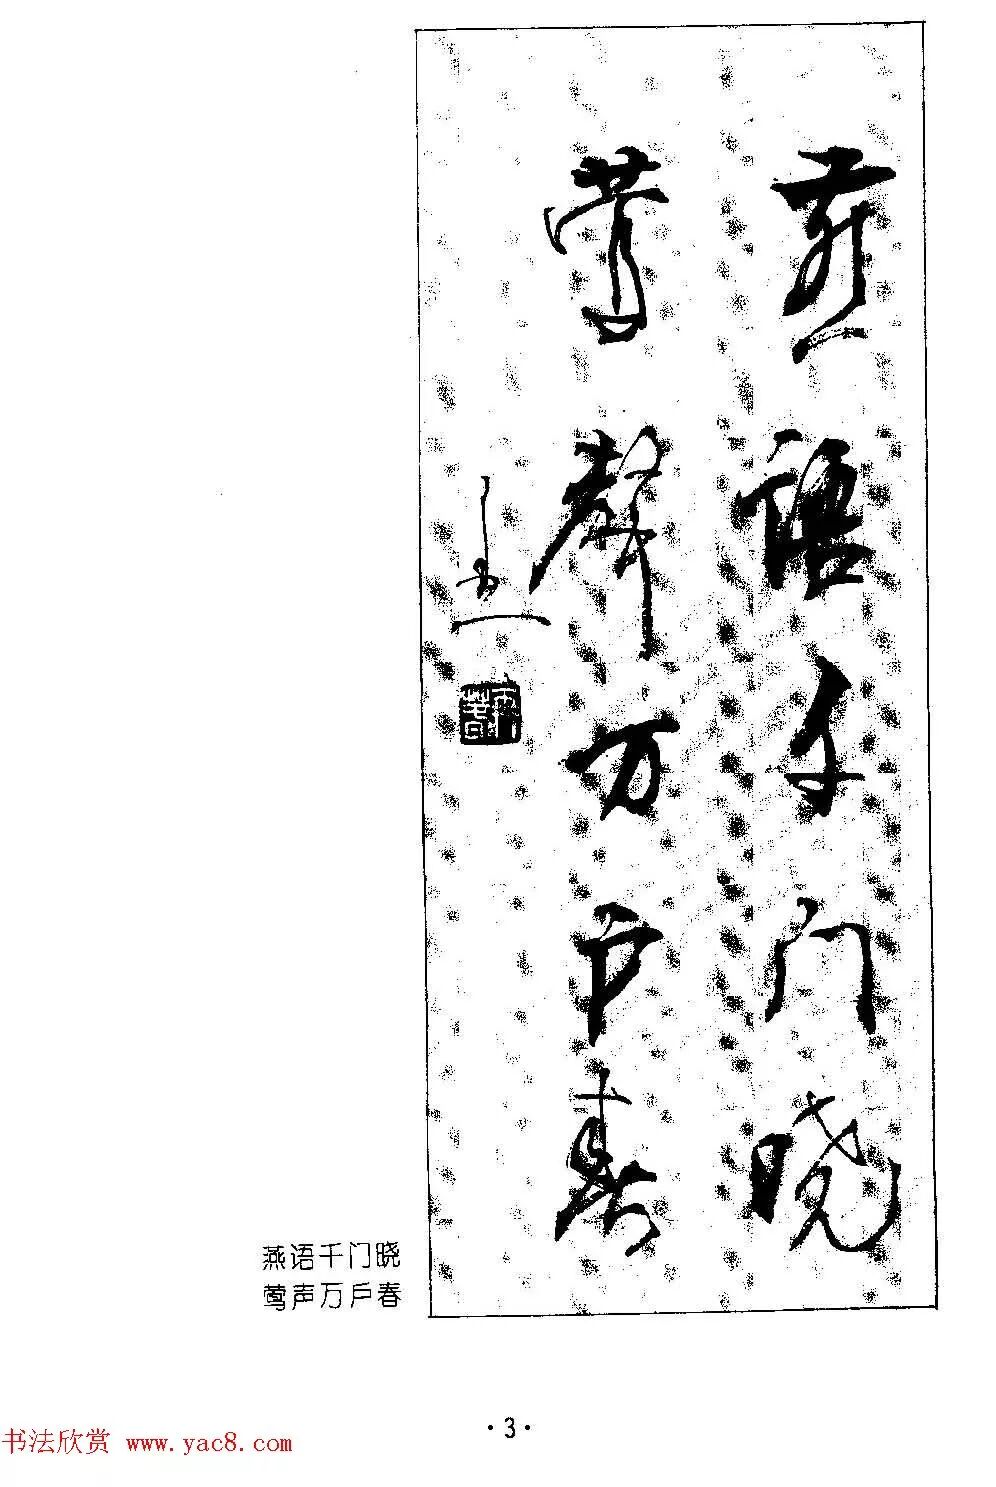 燕语千门晓
莺声万户春
燕语千门晓
莺声万户春
·3·
书法欣赏 www.yac8.com